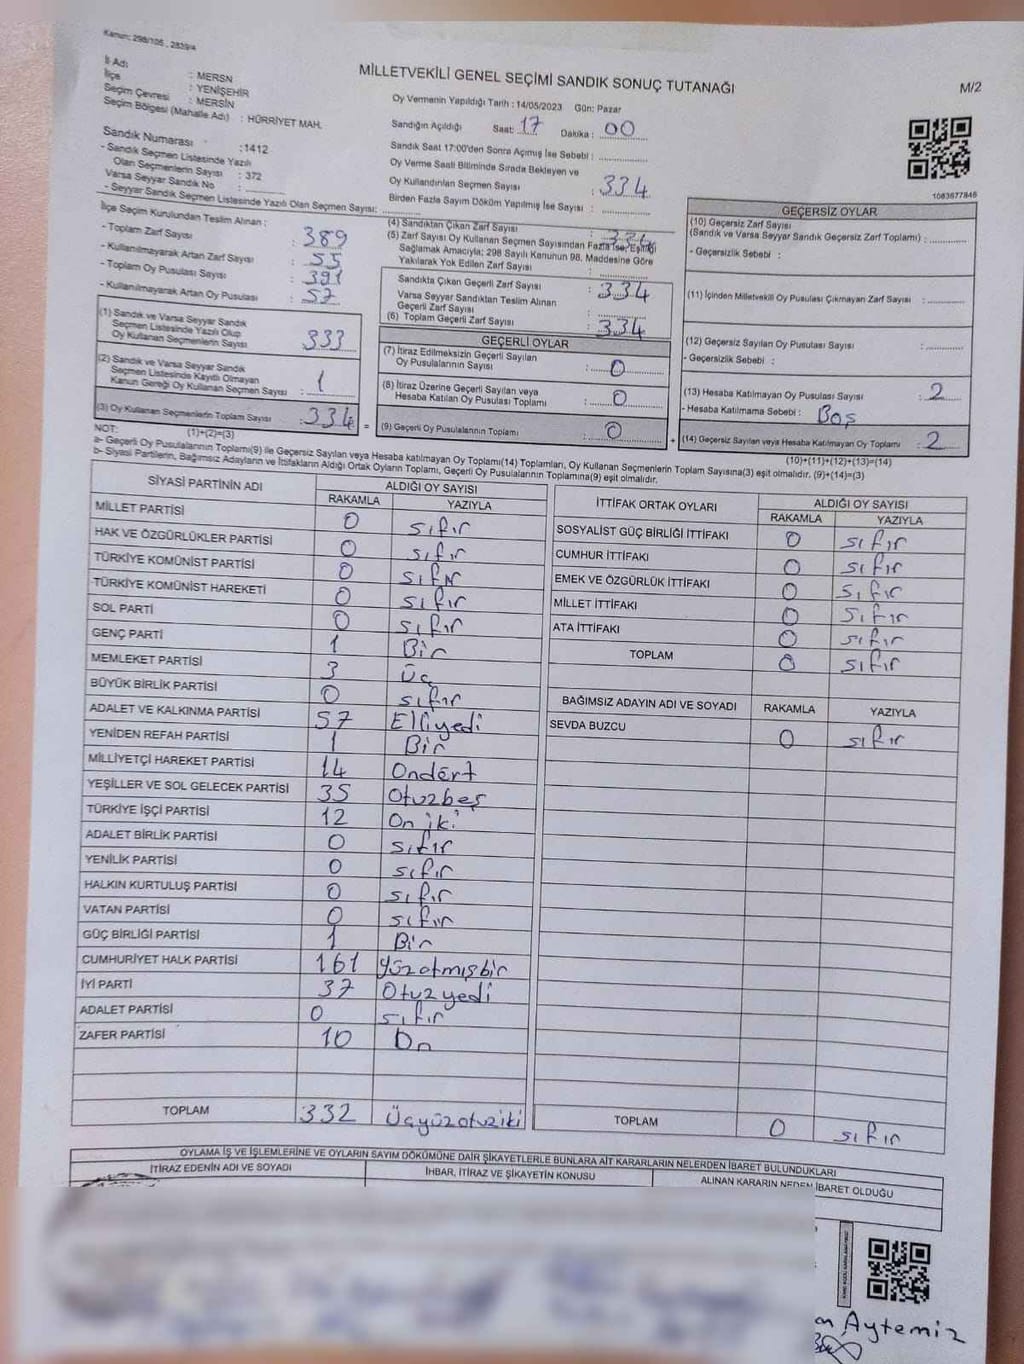 Kanun: 298/105 , 2839/4
MİLLETVEKİLİ GENEL SEÇİMİ SANDIK SONUÇ TUTANAĞI
M/2
İl Adı : MERSN
İlçe : YENİŞEHİR
Seçim Çevresi : MERSİN
Seçim Bölgesi (Mahalle Adı) : HÜRRİYET MAH.
Sandık Numarası : 1412
- Sandık Seçmen Listesinde Yazılı
Olan Seçmenlerin Sayısı : 372
Varsa Seyyar Sandık No :
- Seyyar Sandık Seçmen Listesinde Yazılı Olan Seçmen Sayısı:
Oy Vermenin Yapıldığı Tarih : 14/05/2023 Gün: Pazar
Sandığın Açıldığı Saat: 17 Dakika : 00
Sandık Saat 17:00'den Sonra Açımış İse Sebebi :
Oy Verme Saati Bitiminde Sırada Bekleyen ve
Oy Kullandırılan Seçmen Sayısı : 334
Birden Fazla Sayım Döküm Yapılmış İse Sayısı :
1083677846
İlçe Seçim Kurulundan Teslim Alınan :
- Toplam Zarf Sayısı : 389
- Kullanılmayarak Artan Zarf Sayısı : 55
- Toplam Oy Pusulası Sayısı : 391
- Kullanılmayarak Artan Oy Pusulası : 57
(1) Sandık ve Varsa Seyyar Sandık
Seçmen Listesinde Yazılı Olup
Oy Kullanan Seçmenlerin Sayısı : 333
(2) Sandık ve Varsa Seyyar Sandık
Seçmen Listesinde Kayıtlı Olmayan
Kanun Gereği Oy Kullanan Seçmen Sayısı : 1
(3) Oy Kullanan Seçmenlerin Toplam Sayısı : 334 =
(4) Sandıktan Çıkan Zarf Sayısı : 334
(5) Zarf Sayısı Oy Kullanan Seçmen Sayısından Fazla ise, Eşitliği
Sağlamak Amacıyla; 298 Sayılı Kanunun 98. Maddesine Göre
Yakılarak Yok Edilen Zarf Sayısı :
Sandıkta Çıkan Geçerli Zarf Sayısı : 334
Varsa Seyyar Sandıktan Teslim Alınan
Geçerli Zarf Sayısı :
(6) Toplam Geçerli Zarf Sayısı : 334
GEÇERLİ OYLAR
(7) İtiraz Edilmeksizin Geçerli Sayılan
Oy Pusulalarının Sayısı : 0
(8) İtiraz Üzerine Geçerli Sayılan veya
Hesaba Katılan Oy Pusulası Toplamı : 0
(9) Geçerli Oy Pusulalarının Toplamı : 0 +
GEÇERSİZ OYLAR
(10) Geçersiz Zarf Sayısı
(Sandık ve Varsa Seyyar Sandık Geçersiz Zarf Toplamı) :
- Geçersizlik Sebebi :
(11) İçinden Milletvekili Oy Pusulası Çıkmayan Zarf Sayısı :
(12) Geçersiz Sayılan Oy Pusulası Sayısı :
- Geçersizlik Sebebi :
(13) Hesaba Katılmayan Oy Pusulası Sayısı : 2
- Hesaba Katılmama Sebebi : Boş
(14) Geçersiz Sayılan veya Hesaba Katılmayan Oy Toplamı : 2
NOT: (1)+(2)=(3)
(10)+(11)+(12)+(13)=(14)
a- Geçerli Oy Pusulalarının Toplamı(9) ile Geçersiz Sayılan veya Hesaba katılmayan Oy Toplamı(14) Toplamları, Oy Kullanan Seçmenlerin Toplam Sayısına(3) eşit olmalıdır. (9)+(14)=(3)
b- Siyasi Partilerin, Bağımsız Adayların ve İttifakların Aldığı Ortak Oyların Toplamı, Geçerli Oy Pusulalarının Toplamına(9) eşit olmalıdır.
SİYASİ PARTİNİN ADI ALDIĞI OY SAYISI
RAKAMLA YAZIYLA
MİLLET PARTİSİ 0 sıfır
HAK VE ÖZGÜRLÜKLER PARTİSİ 0 sıfır
TÜRKİYE KOMÜNİST PARTİSİ 0 sıfır
TÜRKİYE KOMÜNİST HAREKETİ 0 sıfır
SOL PARTİ 0 sıfır
GENÇ PARTİ 1 Bir
MEMLEKET PARTİSİ 3 Üç
BÜYÜK BİRLİK PARTİSİ 0 sıfır
ADALET VE KALKINMA PARTİSİ 57 Elliyedi
YENİDEN REFAH PARTİSİ 1 Bir
MİLLİYETÇİ HAREKET PARTİSİ 14 Ondört
YEŞİLLER VE SOL GELECEK PARTİSİ 35 Otuzbeş
TÜRKİYE İŞÇİ PARTİSİ 12 On iki
ADALET BİRLİK PARTİSİ 0 sıfır
YENİLİK PARTİSİ 0 sıfır
HALKIN KURTULUŞ PARTİSİ 0 sıfır
VATAN PARTİSİ 0 sıfır
GÜÇ BİRLİĞİ PARTİSİ 1 Bir
CUMHURİYET HALK PARTİSİ 161 Yüzatmışbir
İYİ PARTİ 37 Otuzyedi
ADALET PARTİSİ 0 sıfır
ZAFER PARTİSİ 10 On
TOPLAM 332 Üçyüzotuziki
İTTİFAK ORTAK OYLARI ALDIĞI OY SAYISI
RAKAMLA YAZIYLA
SOSYALİST GÜÇ BİRLİĞİ İTTİFAKI 0 sıfır
CUMHUR İTTİFAKI 0 sıfır
EMEK VE ÖZGÜRLÜK İTTİFAKI 0 sıfır
MİLLET İTTİFAKI 0 sıfır
ATA İTTİFAKI 0 sıfır
TOPLAM 0 sıfır
BAĞIMSIZ ADAYIN ADI VE SOYADI RAKAMLA YAZIYLA
SEVDA BUZCU 0 sıfır
TOPLAM 0 sıfır
OYLAMA İŞ VE İŞLEMLERİNE VE OYLARIN SAYIM DÖKÜMÜNE DAİR ŞİKAYETLERLE BUNLARA AİT KARARLARIN NELERDEN İBARET BULUNDUKLARI
İTİRAZ EDENİN ADI VE SOYADI İHBAR, İTİRAZ VE ŞİKAYETİN KONUSU ALINAN KARARIN NEDEN İBARET OLDUĞU
Aytemiz